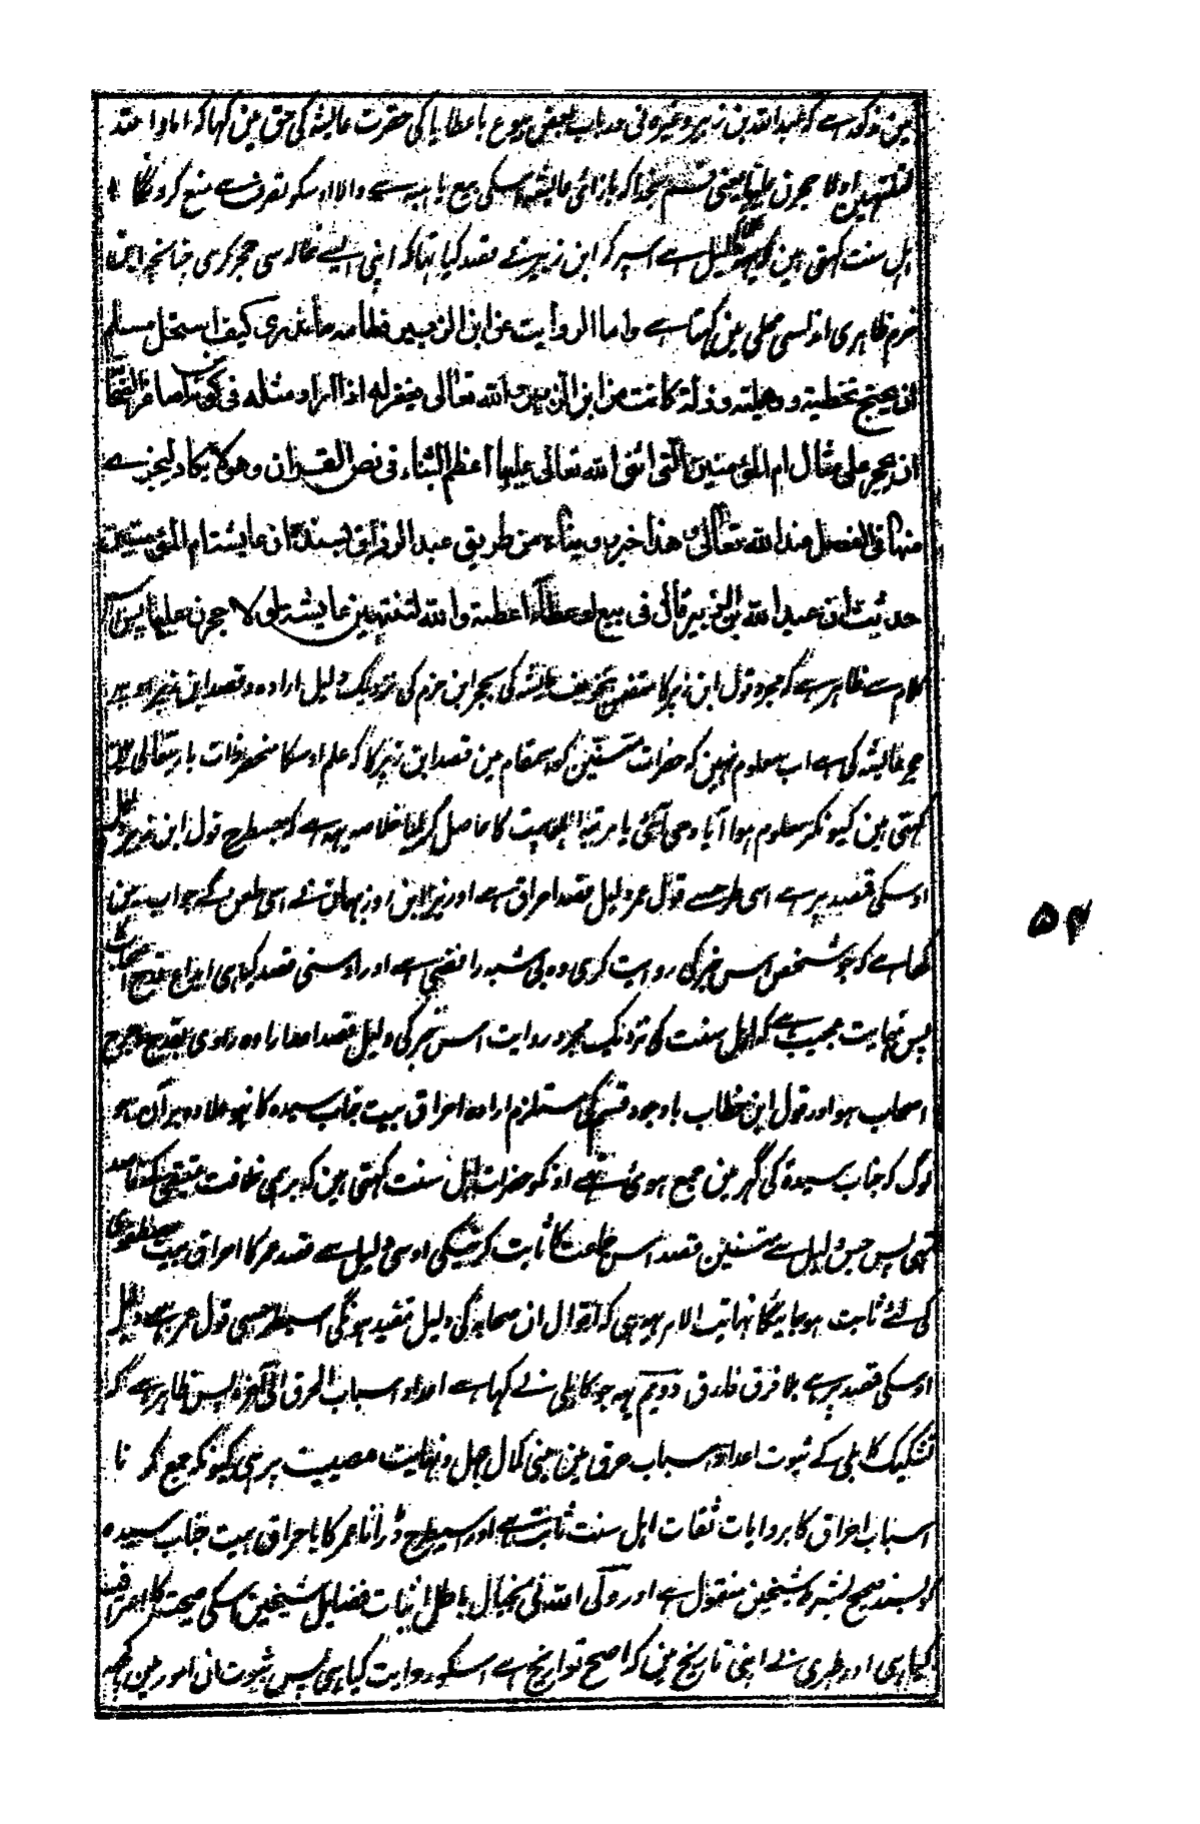 مین مذکور ہے کہ عبداللہ بن زبیر وغیرہ نی در باب بعض بیوع یا عطایا کی حضرت عایشہ کی حق مین کہا کہ اما واللہ
لتنتهین او لاحجرن علیها یعنی قسم بخدا کہ باز آئی عایشہ اسکی بیع یا ہبہ سے والا اوسکو تصرف سے منع کرونگا
اہل سنت کہتی ہین کہ یہہ دلیل ہے اسپر کہ ابن زبیر نے قصد کیا تہا کہ اپنی ایسے خالہ سی حجر کری چنانچہ ابن
حزم ظاہری اذ اسی محلی مین کہتا ہے واما الروایت عن ابن الزبیر فطامه ما ندری کیف استحل مسلم
ان یحتج بخطیة ووهلة وذلة کانت من ابن الزبیر والله تعالی یغفر له اذا اراد مثله فی کونه من اصاغر الصحابة
ان یحجر علی مثال ام المؤمنین التی اثنی الله تعالی علیها اعظم الثناء فی نص القران وهو لا یکاد یتجزے
منها فی الفضل عند الله تعالی هذا خبر رویناه من طریق عبد الرزاق بسنده ان عایشة ام المؤمنین
حدثت ان عبد الله بن الزبیر قال فی بیع او عطاء اعطته والله لتنتهین عایشة او لاحجرن علیها پس اس
کلام سے ظاہر ہے کہ مجرد قول ابن زبیر کا متضمن تخویف عایشہ کی بحجر ابن حزم کی نزدیک دلیل ارادہ وقصد ابن زبیر اوپر
حجر عایشہ کی ہے اب معلوم نہین کہ حضرات متسننین کو اسمقام مین قصد ابن زبیر کا کہ علم اوسکا منحصر بذات باریتعالی
کہتی ہین کیونکر معلوم ہوا آیا وحی آگئی یا مرتبہ کا حاصل کر لیا خلاصہ یہہ ہے کہ جسطرح قول ابن زبیر دلیل
اوسکی قصد پر ہے اسی طرحسے قول عمر دلیل قصد احراق ہے اور نیز ابن روزبہان نے اسی طعن کے جواب مین
لکھا ہے کہ جو شخص اس خبر کی روایت کری وہ بی شبہ رافضی ہے اور اوسنی قصد کیا ہی ایقاع قدح اصحاب کا
پس نہایت عجیب ہے کہ اہل سنت کی نزدیک مجرد روایت اس خبر کی دلیل قصد وارادہ راوی بقدح وجرح
اصحاب ہو اور قول ابن خطاب باوجود قسم کی مستلزم ارادہ احراق بیت جناب سیدہ کا نہو علاوہ برآن جو
لوگ کہ جناب سیدہ کی گہر مین جمع ہوئی تہے اونکو حضرات اہل سنت کہتی ہین کہ برہمی خلافت عتیقی کے قاصد
تہی پس جس دلیل سے متسننین قصد اس جماعت کا ثابت کرینگی اوسی دلیل سے قصد عمر کا احراق بیت مصطفوی
کی لئے ثابت ہو جائیگا نہایت الامر یہہ ہی کہ اقوال ان صحابہ کی دلیل قصد ہونگی اسیطرحسی قول عمر بہی دلیل
اوسکی قصد پر ہے بلا فرق فارق دویم یہہ جو کابلی نے کہا ہے اعداد اسباب الحرق الی آخرہ پس ظاہر ہے کہ
تشکیک کابلی کے ثبوت اعداد اسباب حرق مین مبنی کمال جہل ونہایت عصبیت پر ہی کیونکہ جمع کر نا
اسباب احراق کا بروایات ثقات اہل سنت ثابت ہے اور اسیطرح ڈرانا عمر کا باحراق بیت جناب سیدہ
کو بسند صحیح بشرط شیخین منقول ہے اور ولی اللہ نی بخیال باطل اثبات فضایل شیخین اسکی صحیحت کا اعتراف
کیا ہی اور طبری نے اپنی تاریخ مین کہ اصح تواریخ ہے اسکو روایت کیا ہی پس ثبوت ان امور مین کچہ
۵۴